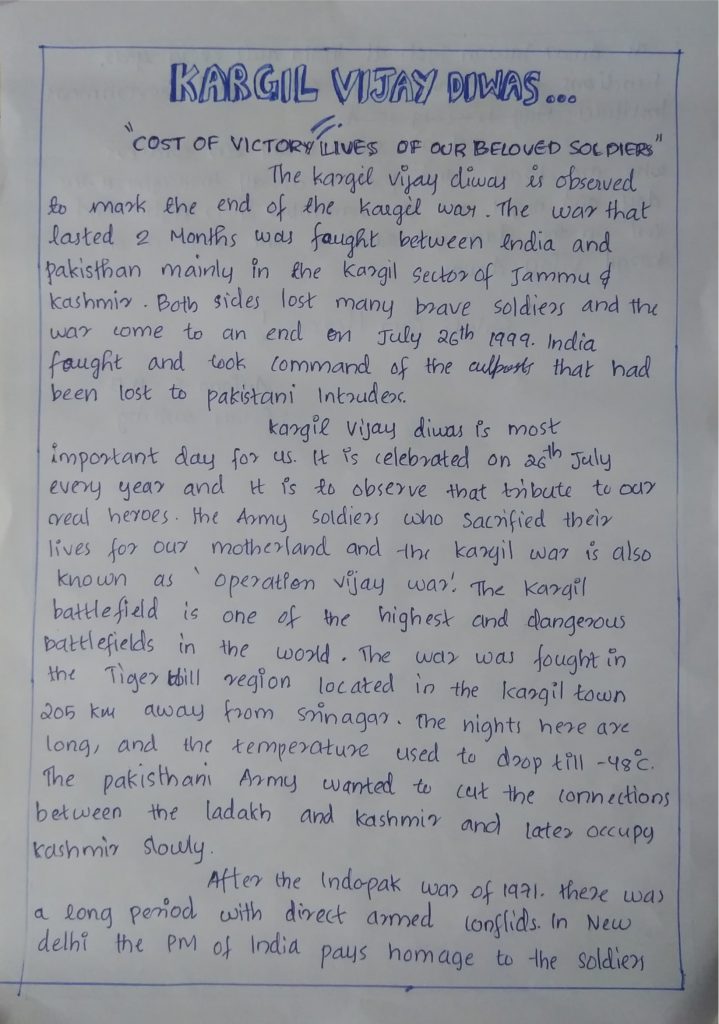 KARGIL VIJAY DIWAS...
"COST OF VICTORY LIVES OF OUR BELOVED SOLDIERS"
The kargil vijay diwas is observed
to mark the end of the kargil war. The war that
lasted 2 Months was faught between India and
pakisthan mainly in the Kargil sector of Jammu &
kashmir. Both sides lost many brave soldiers and the
war come to an end on July 26th 1999. India
faught and took command of the outposts that had
been lost to pakistani Intruders.
Kargil vijay diwas is most
important day for us. It is celebrated on 26th July
every year and It is to observe that tribute to our
real heroes. the Army soldiers who sacrified their
lives for our motherland and the kargil war is also
known as 'operation vijay war'. The Kargil
battlefield is one of the highest and dangerous
battlefields in the world. The war was fought in
the Tiger Hill region located in the Kargil town
205 km away from srinagar. The nights here are
long, and the temperature used to drop till -48°c.
The pakisthani Army wanted to cut the connections
between the ladakh and kashmir and later occupy
kashmir slowly.
After the Indopak war of 1971. there was
a long period with direct armed conflids. In New
delhi the PM of India pays homage to the soldiers